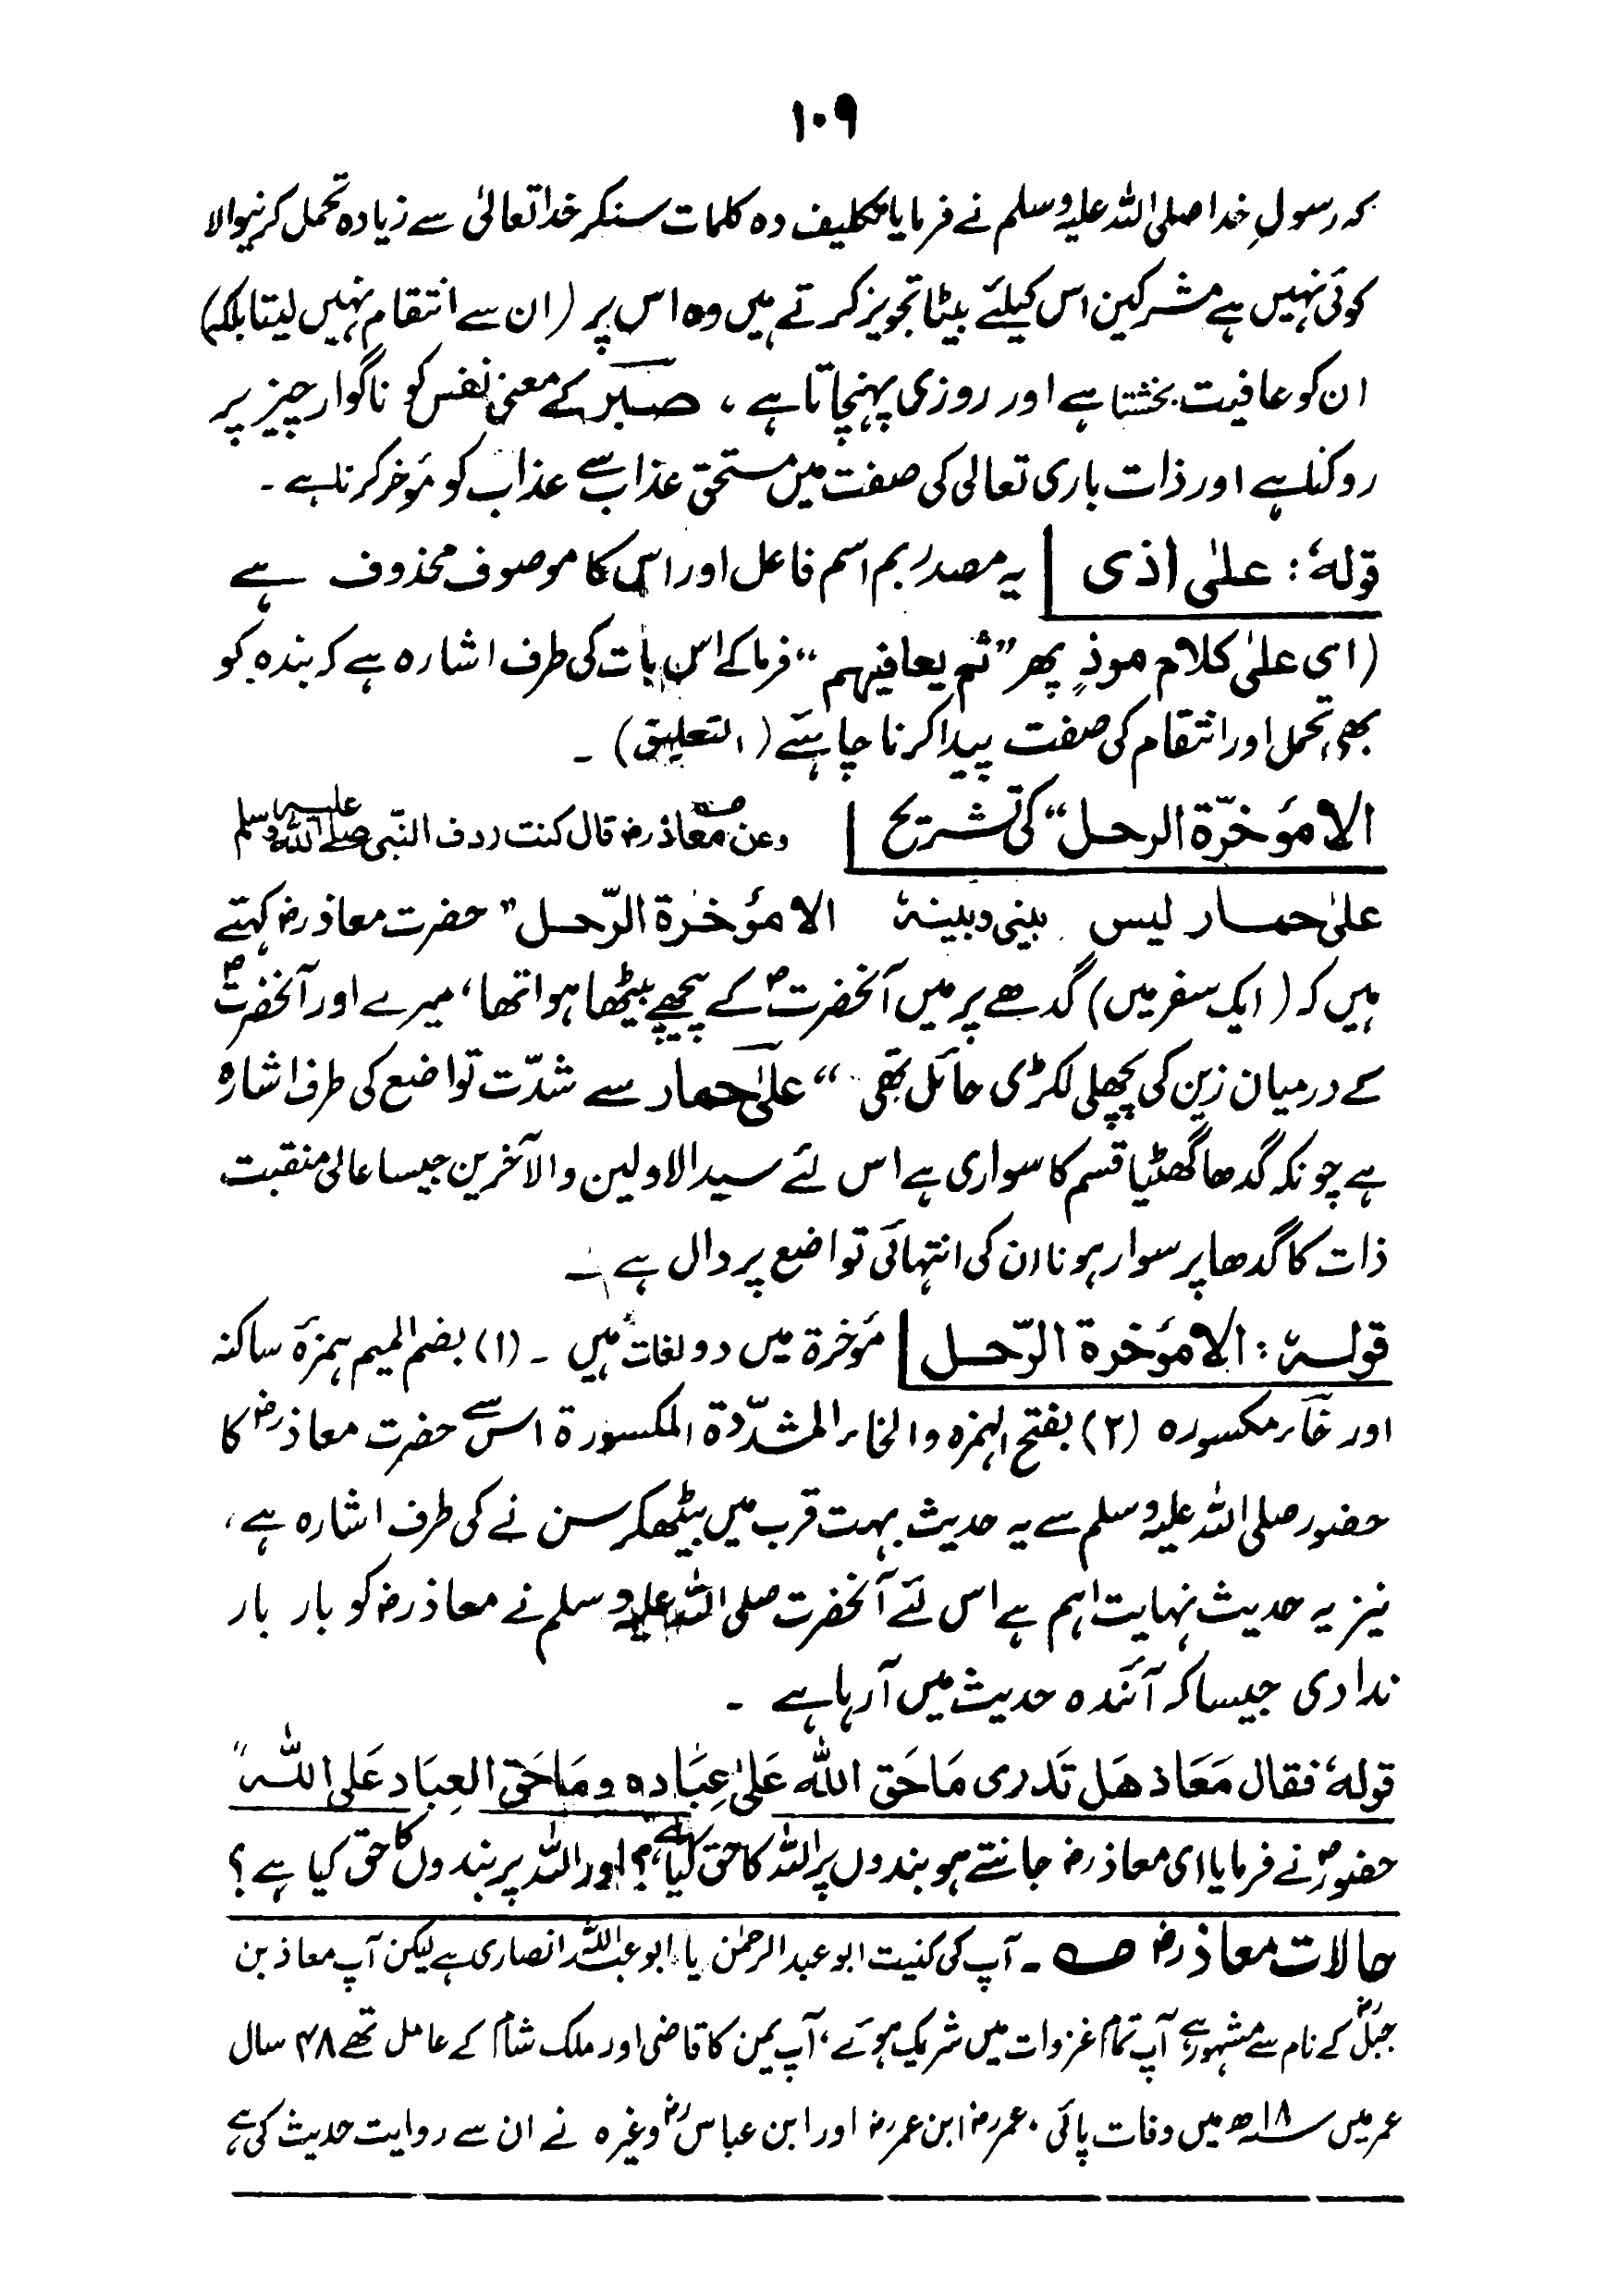 ۱۰۹
کہ رسولِ خدا صلی اللہ علیہ وسلم نے فرمایا تکلیف دہ کلمات سنکر خدا تعالیٰ سے زیادہ تحمل کرنیوالا
کوئی نہیں ہے مشرکین اس کیلئے بیٹا تجویز کرتے ہیں وہ اس پر (ان سے انتقام نہیں لیتا بلکہ)
ان کو عافیت بخشتا ہے اور روزی پہنچاتا ہے ، صبر کے معنی نفس کو ناگوار چیز پر
روکنا ہے اور ذات باری تعالی کی صفت میں مستحق عذاب سے عذاب کو مؤخر کرنا ہے ۔
قولہٗ : علیٰ اذی | یہ مصدر بم اسم فاعل اور اس کا موصوف محذوف ہے
(ای علیٰ کلام موذٍ پھر ”ثم یعافیھم“ فرما کے اس بات کی طرف اشارہ ہے کہ بندہ کو
بھی تحمل اور انتقام کی صفت پیدا کرنا چاہئے (التعلیق) ۔
الا مؤخّرۃ الرحل“ کی تشریح | وعن معاذ رض قال کنت ردف النّبی صلی اللہ علیہ وسلم
علیٰ حمار لیس بینی وبینہٗ الا مؤخرۃ الرّحل” حضرت معاذ رض کہتے
ہیں کہ (ایک سفر میں) گدھے پر میں آنحضرت ص کے پیچھے بیٹھا ہوا تھا، میرے اور آنحضرت ص
کے درمیان زین کی پچھلی لکڑی حائل تھی “ علیٰ حمار سے شدّت تواضع کی طرف اشارہ
ہے چونکہ گدھا گھٹیا قسم کا سواری ہے اس لئے سید الاولین والآخرین جیسا عالی منقبت
ذات کا گدھا پر سوار ہونا ان کی انتہائی تواضع پر دال ہے ۔
قولہٗ : الا مؤخرۃ الرّحل | مؤخرۃ میں دو لغات ہیں ۔ (۱) بضم المیم ہمزہ ساکنہ
اور خاء مکسورہ (۲) بفتح الہمزہ والخاء المشدّدۃ المکسورۃ اس سے حضرت معاذ رض کا
حضور صلی اللہ علیہ وسلم سے یہ حدیث بہت قرب میں بیٹھکر سن نے کی طرف اشارہ ہے ،
نیز یہ حدیث نہایت اہم ہے اس لئے آنحضرت صلی اللہ علیہ وسلم نے معاذ رض کو بار بار
ندا دی جیسا کہ آئندہ حدیث میں آرہا ہے ۔
قولہٗ فقال مَعَاذ ھَل تَدری مَا حَق اللّٰہ عَلیٰ عِبَادہ وَمَا حَق العِبَاد عَلی اللّٰہ“
حضور ص نے فرمایا ای معاذ رض جانتے ہو بندوں پر اللہ کا حق کیا ہے؟ اور اللہ پر بندوں کا حق کیا ہے ؟
حالات معاذ رض ؎ ۔ آپ کی کنیت ابو عبد الرحمٰن یا ابو عبد اللہ انصاری ہے لیکن آپ معاذ بن
جبل رض کے نام سے مشہور ہے آپ تمام غزوات میں شریک ہوئے ، آپ یمن کا قاضی اور ملک شام کے عامل تھے ۴۸ سال
عمر میں ۱۸ھ میں وفات پائی ۔ عمر رض ابن عمر رض اور ابن عباس رض وغیرہ نے ان سے روایت حدیث کی ہے